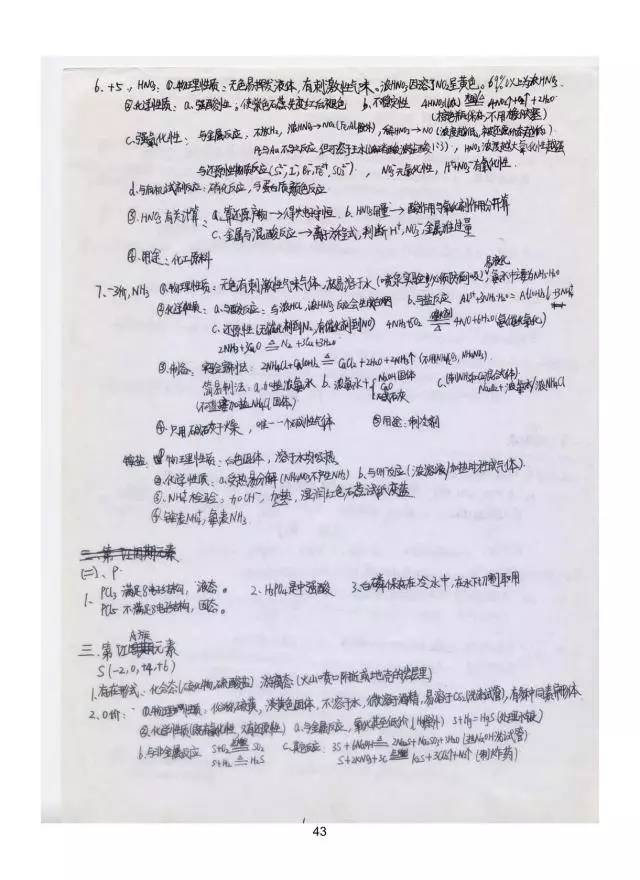 6. +5. HNO3: ①物理性质: 无色易挥发液体, 有刺激性气味。浓HNO3因溶了NO2呈黄色。69%以上为浓HNO3.
②化学性质: a.强酸性: 使紫色石蕊先变红后褪色 b.不稳定性 4HNO3(浓) = 4NO2↑+O2↑+2H2O
(棕色瓶保存, 不用橡胶塞)
C.强氧化性: 与金属反应: 不放H2, 浓HNO3→NO2(Fe、Al除外), 稀HNO3→NO
Pt与Au不与之反应, 但可溶于王水, HNO3浓度越大氧化性越强
与还原性物质反应(S2-, I-, Br-, Fe2+, SO32-), NO3-无氧化性, H++NO3-有氧化性.
d.与有机试剂反应: 硝化反应, 与蛋白质颜色反应
③.HNO3有关计算: a.算还原产物→得失电子守恒 b. HNO3用量→酸作用与氧化剂作用分开算
C.金属与混酸反应→离子方程式, 判断H+,NO3-,金属谁过量
④.用途: 化工原料
易液化
7. -3价, NH3 ①物理性质: 无色有刺激性气味气体, 极易溶于水(喷泉实验, 必须防倒吸), 氨水中主要为NH3·H2O
②化学性质: a.与酸反应: 与浓HCl, 浓HNO3反应会生成白烟 b.与盐反应 Al3++3NH3·H2O = Al(OH)3↓+3NH4+
C.还原性(无催化剂到N2, 有催化剂到NO) 4NH3+5O2 = 4NO+6H2O (氨催化氧化)
2NH3+3CuO = N2+3Cu+3H2O
③.制备: 实验室制法: 2NH4Cl+Ca(OH)2 = CaCl2+2H2O+2NH3↑
简易制法: a.加热浓氨水 b.浓氨水+{NaOH固体
CaO
碱石灰
(不直接加热NH4Cl固体)
④.只用碱石灰干燥, 唯一一个碱性气体 ⑤用途: 制冷剂
铵盐: ①物理性质: 白色固体, 溶于水均吸热
②.化学性质: a.受热易分解(NH4NO3不产生NH3) b.与OH-反应(浓溶液/加热时生成气体).
③.NH4+检验: 加OH-, 加热, 湿润红色石蕊试纸变蓝
④.铵表NH4+, 氨表NH3.
二、第VA周期元素
(二)、P.
1. PCl3 满足8电子结构, 液态。 2. H3PO4是中强酸 3.白磷保存在冷水中, 在水下切割取用
PCl5 不满足8电子结构, 固态。
A族
三.第VI周期元素
S(-2,0,+4,+6)
1.存在形式: 化合态(硫化物,硫酸盐) 游离态(火山喷口附近或地壳的岩层里)
2.0价: ①物理性质: 俗称硫磺, 淡黄色固体, 不溶于水, 微溶于酒精, 易溶于CS2(洗试管), 有多种同素异形体.
②.化学性质(既有氧化性又有还原性) a.与金属反应, 氧化其至低价 S+Hg=HgS (处理水银)
b.与非金属反应 S+O2 = SO2 C.其它反应: 3S+6NaOH = 2Na2S+Na2SO3+3H2O (热NaOH洗试管)
S+H2 = H2S S+2KNO3+3C = K2S+3CO2↑+N2↑ (制炸药)
43